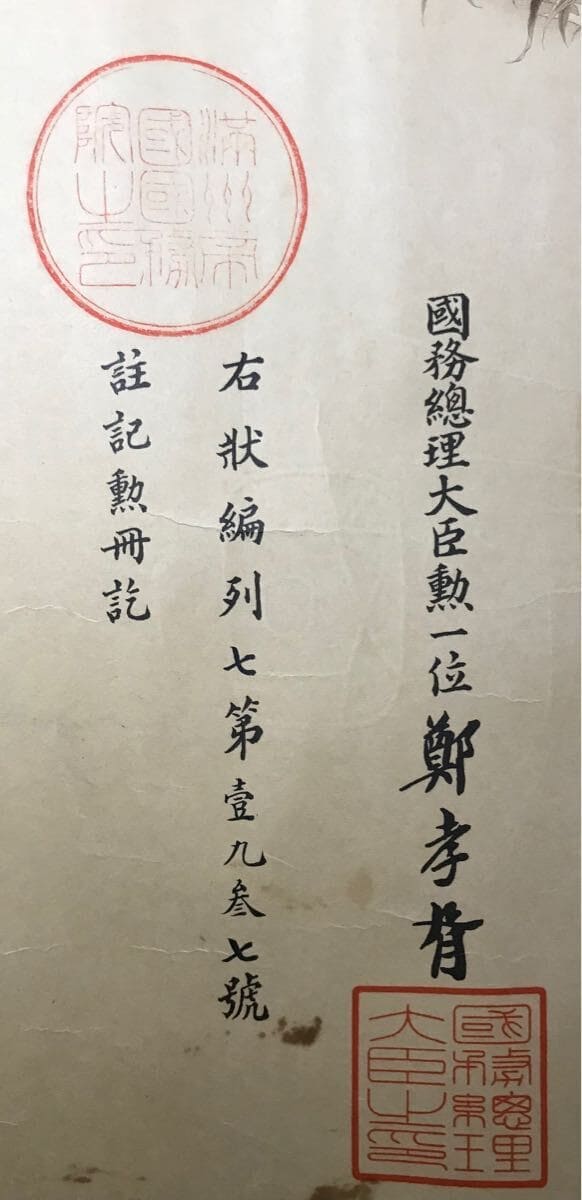 國務總理大臣勲一位鄭孝胥
右狀編列七第壹九叁七號
註記勲冊訖
滿州帝
國國務
院之印
國務總理
大臣之印